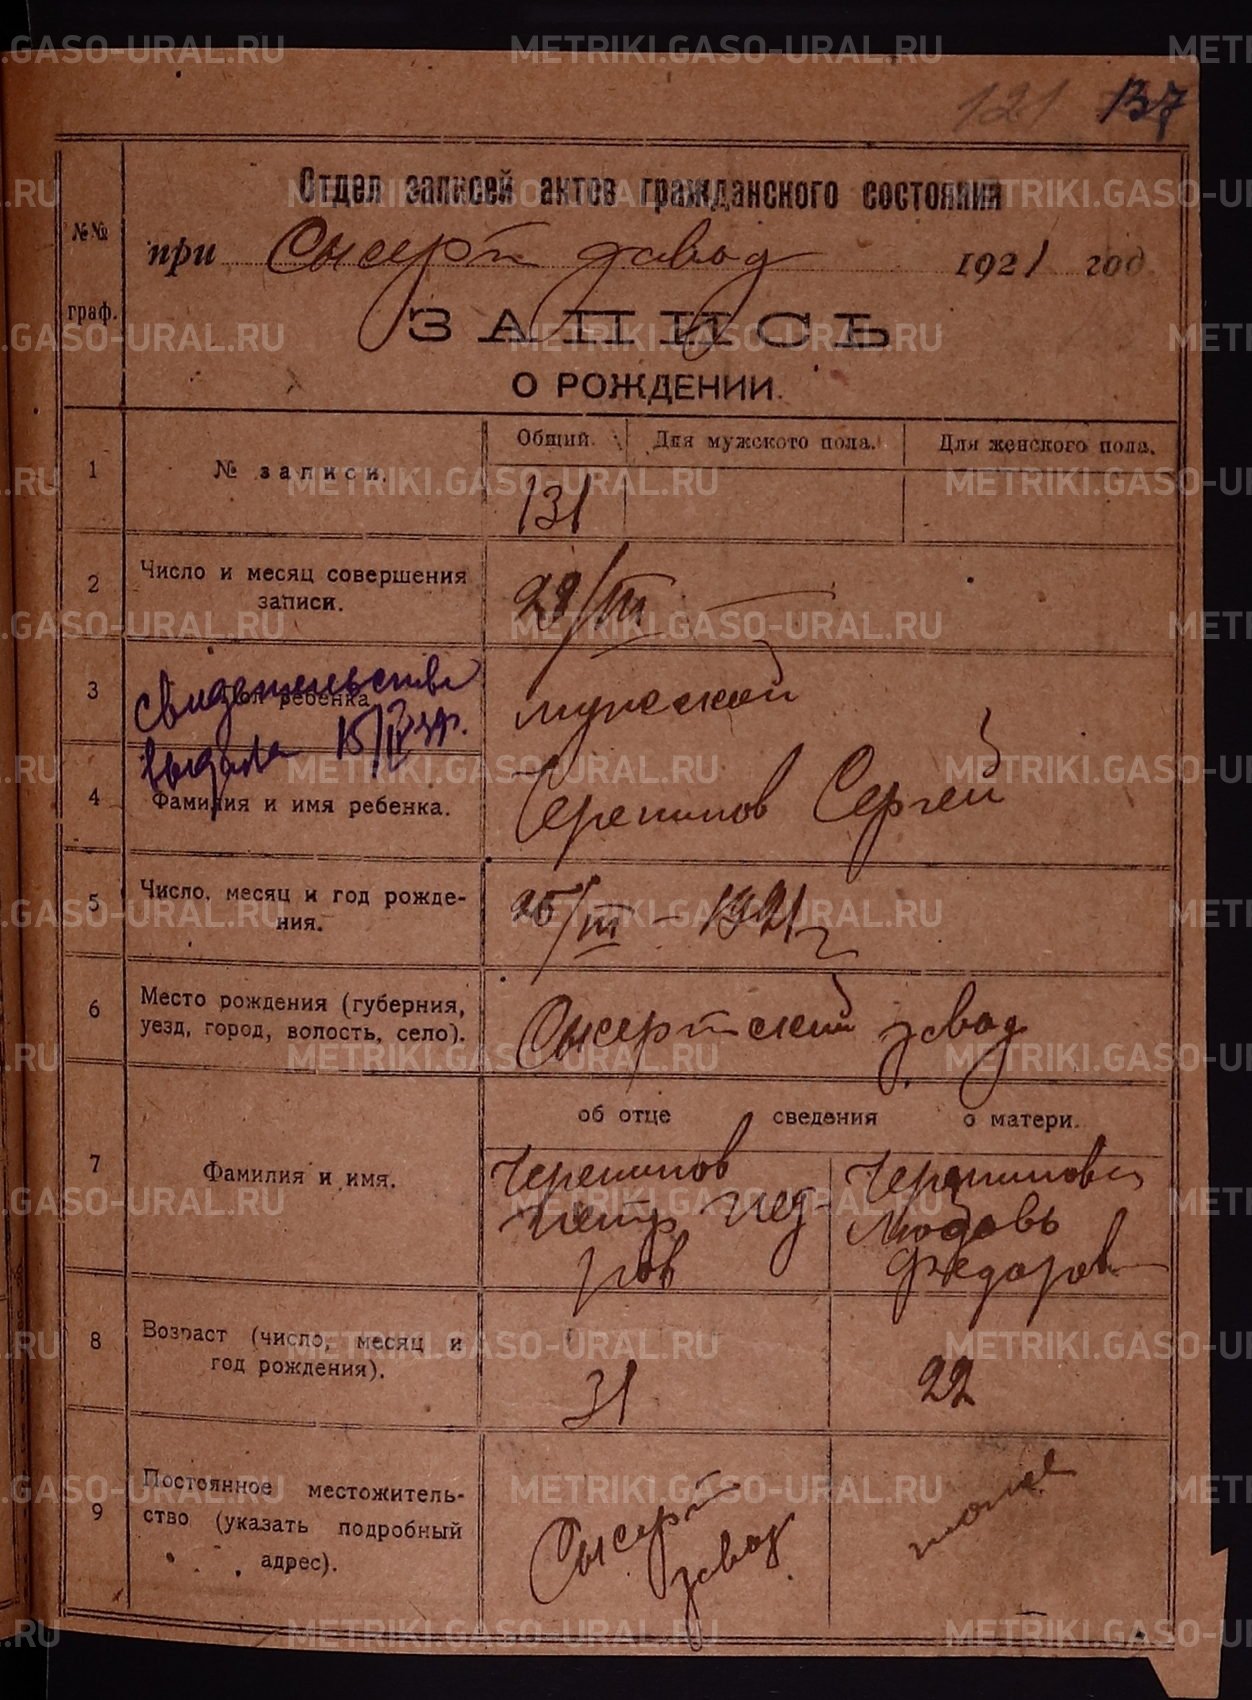 121 137
Отдел записей актов гражданского состояния
№№ граф.
при Сысерт завод 1921 год
ЗАПИСЬ
О РОЖДЕНИИ.
Общий. Для мужского пола. Для женского пола.
1 № записи. 131
2 Число и месяц совершения
записи. 29/III
3 Пол ребенка мужской
свидетельство
выдана 15/IV
4 Фамилия и имя ребенка. Черепанов Сергей
5 Число, месяц и год рожде-
ния. 25/III – 1921 г
6 Место рождения (губерния,
уезд, город, волость, село). Сысертский завод
об отце сведения о матери.
7 Фамилия и имя.
Черепанов Черепанова
Петр Любовь
Федоров
8 Возраст (число, месяц и
год рождения). 31 22
9 Постоянное местожитель-
ство (указать подробный
адрес). Сысерт
завод
тоже
METRIKI.GASO-URAL.RU